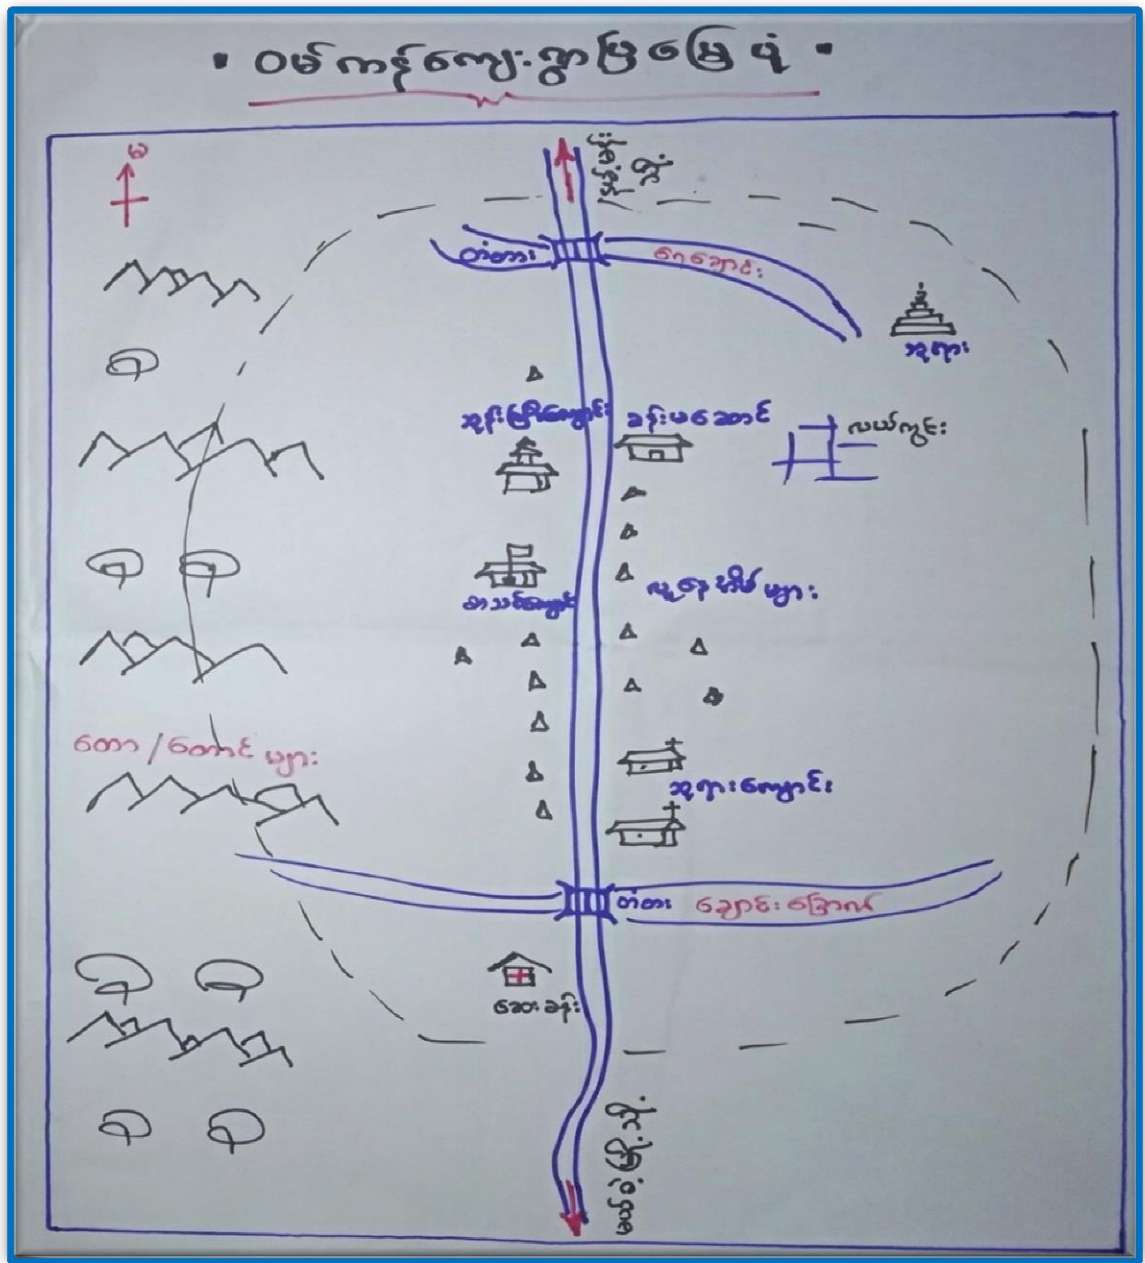 ဝမ်ကန်ကျေးရွာပြမြေပုံ
မ
တံတား
ရေချောင်း
ဘုရား
ဘုန်းကြီးကျောင်း
ခန်းမဆောင်
လယ်ကွင်း
စာသင်ကျောင်း
လူနေအိမ်များ
တော/တောင်များ
ဘုရားကျောင်း
တံတား
ချောင်းခြောက်
ဆေးခန်း